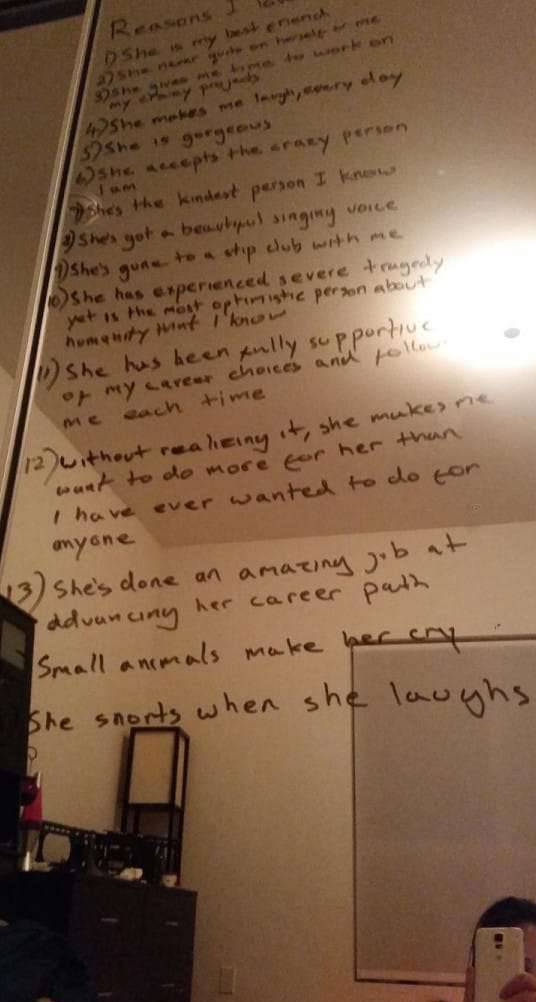 Reasons I lo
1) She is my best friend
2) She never quits on herself or me
3) She gives me time to work on
my crazy projects
4) She makes me laugh, every day
5) She is gorgeous
6) She accepts the crazy person
I am
7) She's the kindest person I know
8) She's got a beautiful singing voice
9) She's gone to a stip club with me
10) She has experienced severe tragedy
yet is the most optimistic person about
humanity that I know
11) She has been fully supportive
of my career choices and follow
me each time
12) without realizing it, she makes me
want to do more for her than
I have ever wanted to do for
anyone
13) She's done an amazing job at
advancing her career path
Small animals make her cry
She snorts when she laughs